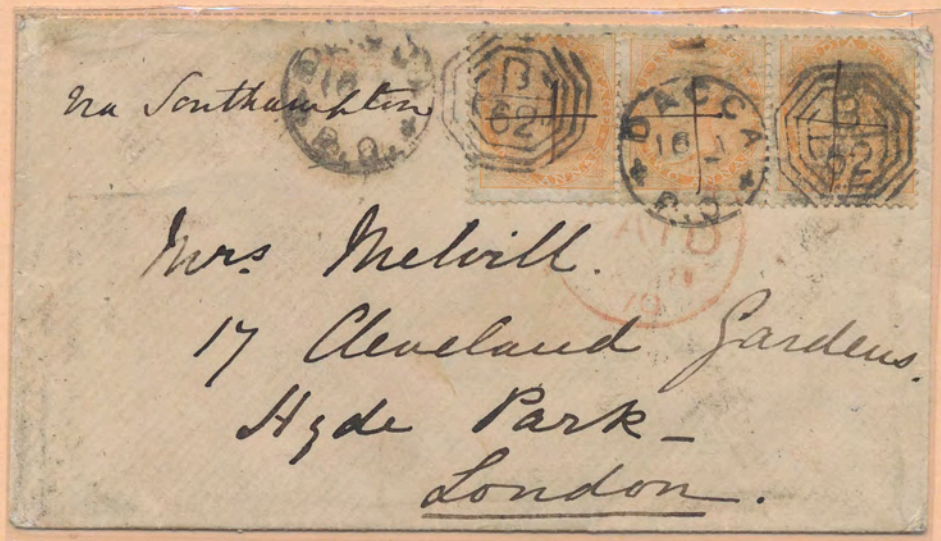 via Southampton
B
62
DACCA
16 1
P.O
B
62
PAID
Mrs. Melvill.
17 Cleveland Gardens.
Hyde Park _
London.